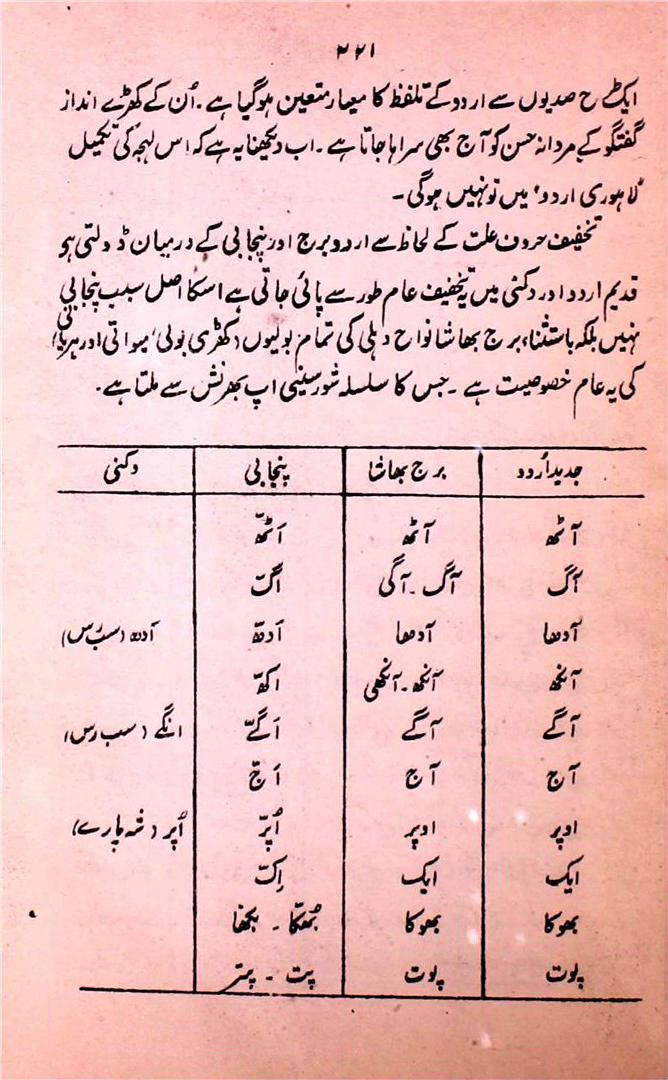 ۲۲۱
ایک طرح صدیوں سے اردو کے تلفظ کا معیار متعین ہو گیا ہے۔ اُن کے کھڑے انداز
گفتگو کے مردانہ حسن کو آج بھی سراہا جاتا ہے۔ اب دیکھنا یہ ہے کہ اس لہجہ کی تکمیل
'لاہوری اردو' میں تو نہیں ہو گی۔
تخفیف حروف علت کے لحاظ سے اردو برج اور پنجابی کے درمیان ڈولتی ہو
قدیم اردو اور دکنی میں یہ تخفیف عام طور سے پائی جاتی ہے اسکا اصل سبب پنجابی
نہیں بلکہ باستثناء برج بھاشا نواح دہلی کی تمام بولیوں (کھڑی بولی' میواتی اور ہریانی)
کی یہ عام خصوصیت ہے۔ جس کا سلسلہ شورسینی اپ بھرنش سے ملتا ہے۔
جدید اُردو برج بھاشا پنجابی دکنی
آٹھ آٹھ اَٹھّ
آگ آگ۔ آگی اگّ
آدھا آدھا اَدھّ آدھ (سب رس)
آنکھ آنکھ۔ آنکھی اکھّ
آگے آگے اَگّے انگے (سب رس)
آج آج اَجّ
اوپر اوپر اُپّر اُپر (شہ پارے)
ایک ایک اِکّ
بھوکا بھوکا بُھکّا۔ بکھا
پوت پوت پت۔ پتر